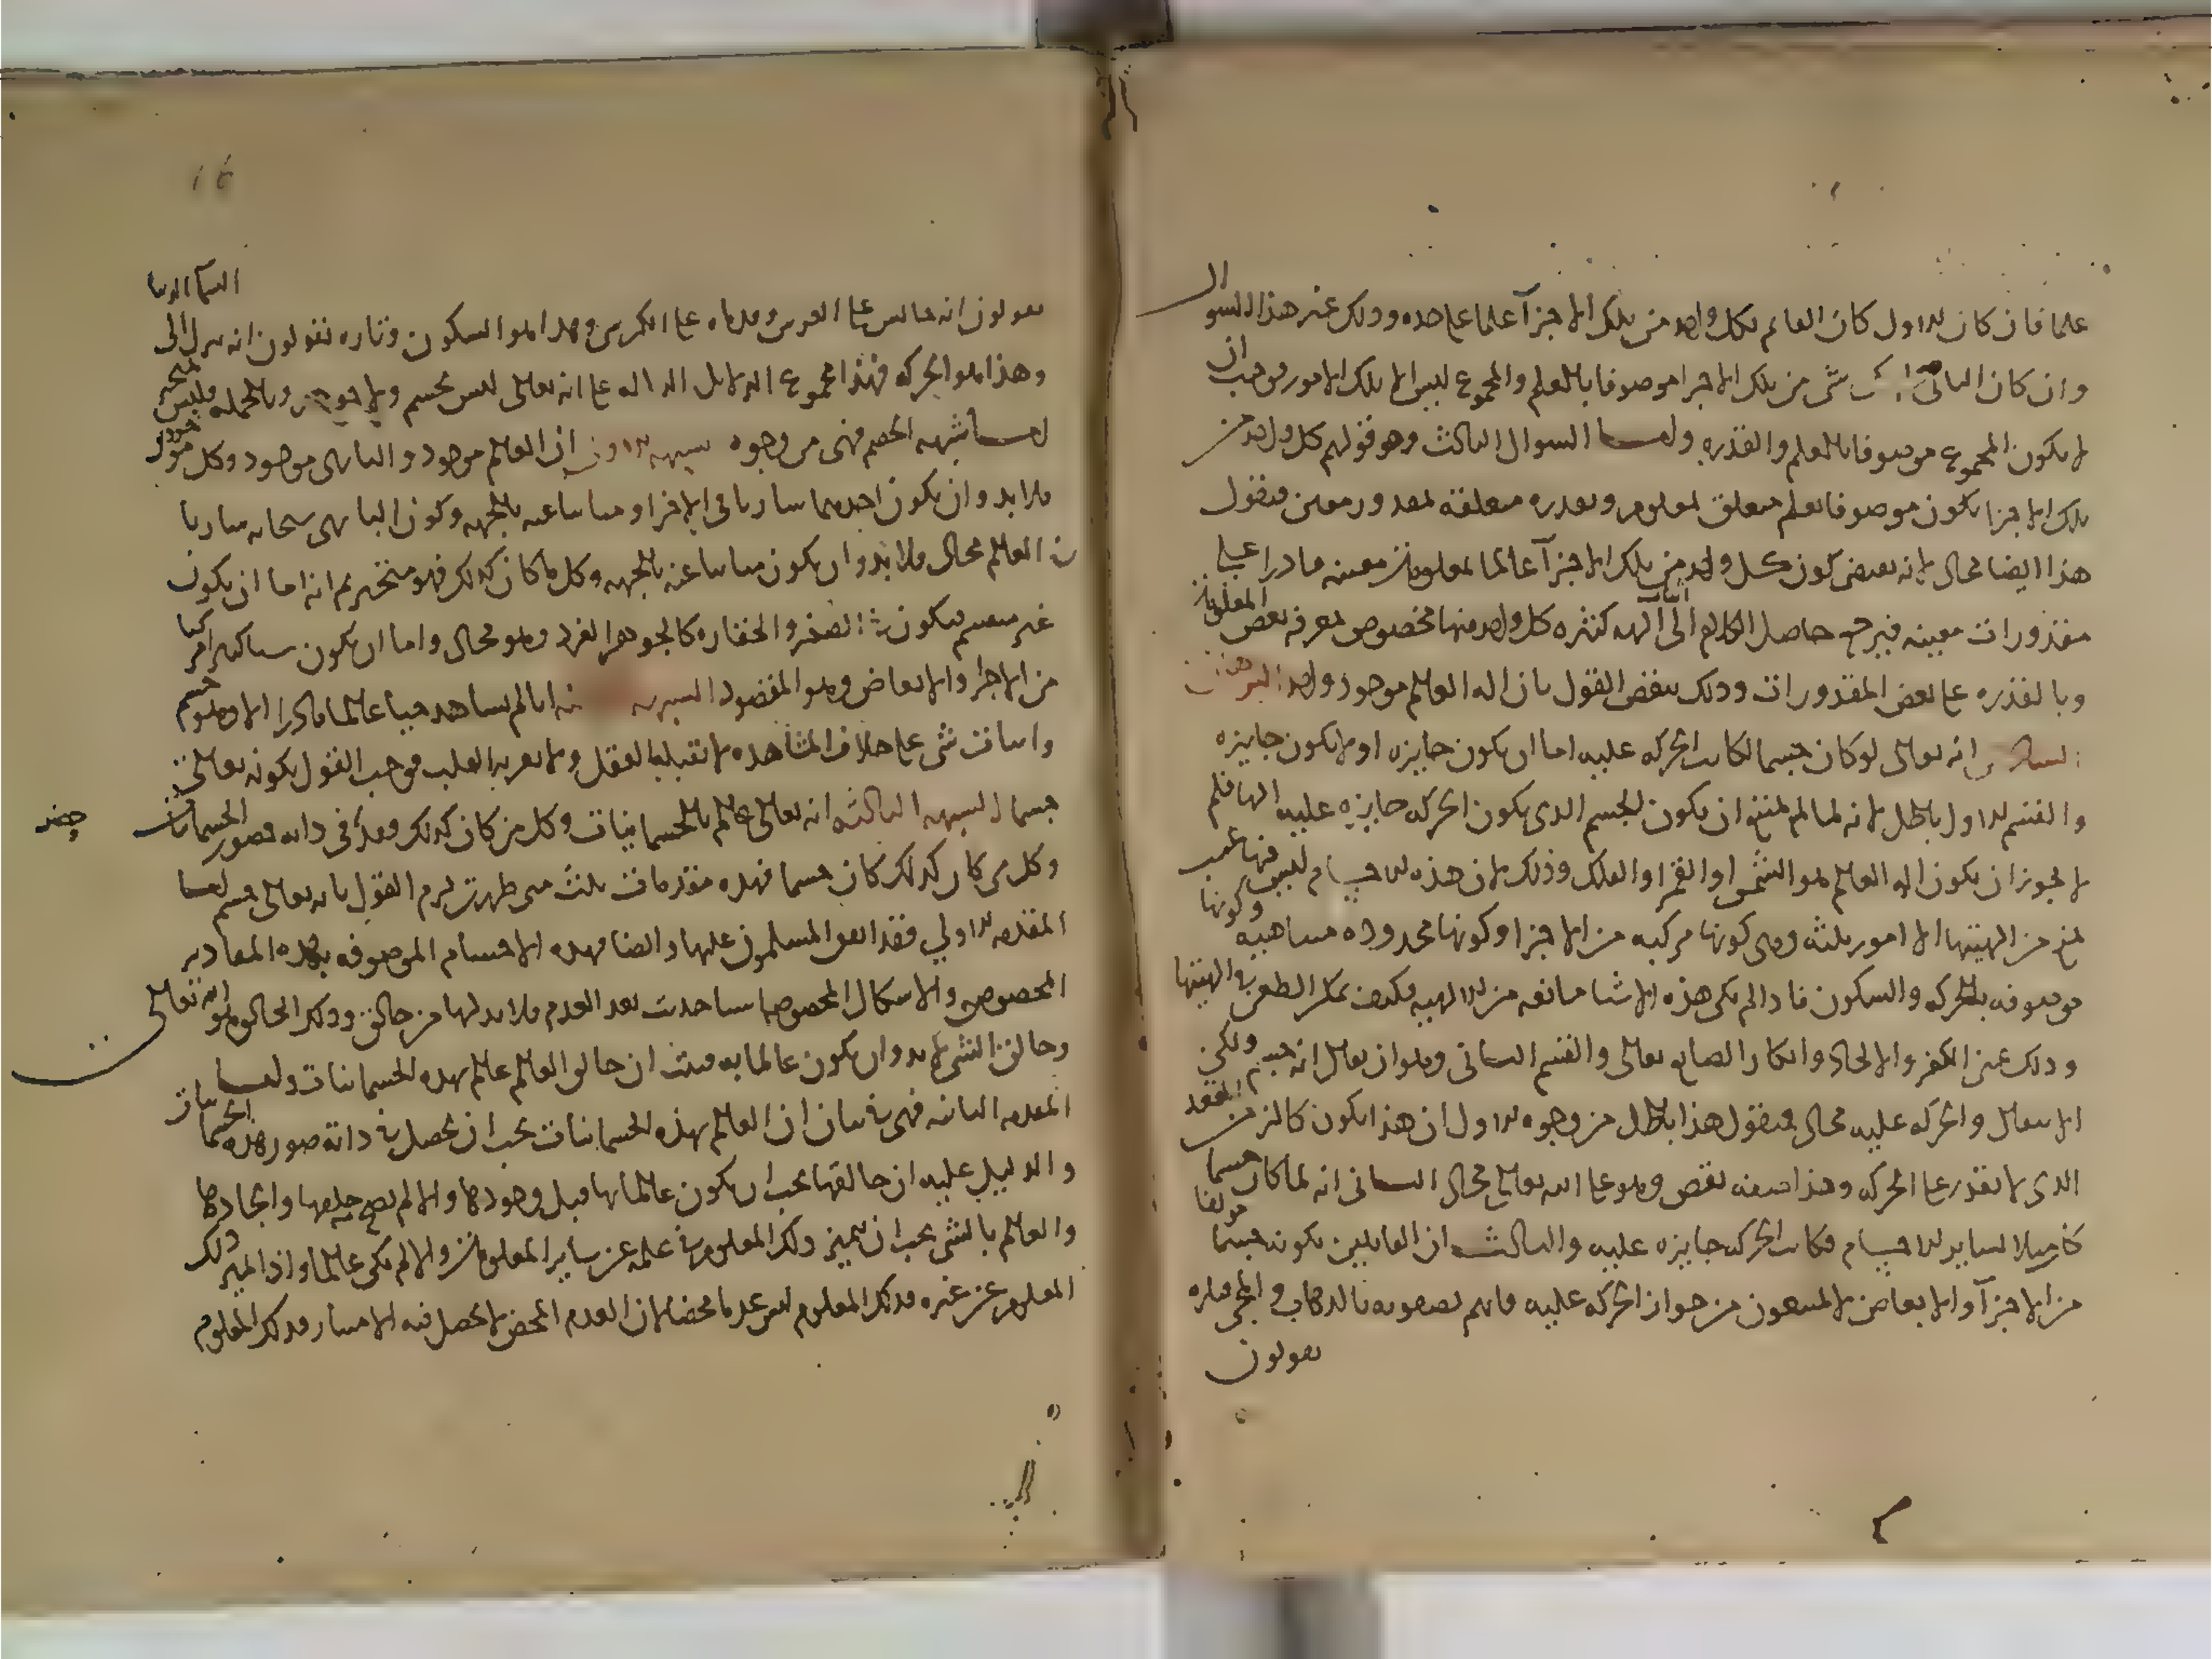 علما فان كان الاول كان العالم بكل واحد من تلك الاجزآ علما على حده وذلك غير هذا السوال
وان كان الثانى شى من تلك الاجزا موصوفا بالعلم والمجموع ليس الا تلك الامور فوجب ان
لا يكون المجموع موصوفا بالعلم والقدره واما السوال الثالث وهو قولهم كل واحد من
تلك الاجزا يكون موصوفا بعلم متعلق بمعلوم وبقدره متعلقه بمقدور معين فنقول
هذا ايضا محال لانه يقتضى كون كل واحد من تلك الاجزآ عالما بمعلومات معينه قادرا على
مقدورات معينه فيرجع حاصل الكلام الى اثبات آلهه كثيره كل واحد منها مخصوص بمعرفه بعض المعلومات
وبالقدره على بعض المقدورات وذلك ينقض القول بان اله العالم موجود واحد البرهان
السادس انه تعالى لو كان جسما لكانت الحركه عليه اما ان يكون جايزه او لا يكون جايزه
والقسم الاول باطل لانه لما لم يمتنع ان يكون الجسم الذى يكون الحركه جايزه عليه الها فلم
لا يجوز ان يكون اله العالم هو الشمس او القمر او الفلك وذلك لان هذه الاجسام ليس فيها عيب
يمنع من الهيتها الا امور ثلثه وهى كونها مركبه من الاجزا وكونها محدوده متناهيه وكونها
موصوفه بالحركه والسكون فاذا لم يكن هذه الاشيا مانعه من الالهيه فكيف يمكن الطعن فى الهيتها
وذلك عين الكفر والالحاد وانكار الصانع تعالى والقسم الثانى وهو ان يقال انه جسم ولكن
الانتقال والحركه عليه محال فنقول هذا باطل من وجوه الاول ان هذا يكون كالزمن المقعد
الذى لا يقدر على الحركه وهذا صفه نقص وهو على الله تعالى محال الثانى انه لما كان جسما
كان مثلا لساير الاجسام فكانت الحركه جايزه عليه والثالث ان القايلين بكونه جسما مولفا
من الاجزآ والابعاض لا يمنعون من جواز الحركه عليه فانهم يصفونه بالذهاب والمجى فتاره
يقولون
يقولون انه جالس على العرش وقدماه على الكرسى وهذا هو السكون وتاره يقولون انه ينزل الى السمآ الدنيا
وهذا هو الحركه فهذا مجموع الدلايل الداله على انه تعالى ليس بجسم ولا جوهر وبالجمله فليس بمتحيز
اما شبهه الخصم فهى من وجوه الشبهه الاولى ان العالم موجود والبارى موجود وكل موجودين
فلا بد وان يكون احدهما ساريا فى الاخر او مباينا عنه بالجهه وكون البارى سبحانه ساريا
فى العالم محال فلا بد وان يكون مباينا عنه بالجهه وكل ما كان كذلك فهو متحيز ثم انه اما ان يكون
غير منقسم فيكون فى الصغر والحقاره كالجوهر الفرد وهو محال واما ان يكون شيا كبيرا مركبا
من الاجزا والابعاض وهو المقصود الشبهه الثانيه انا لم نشاهد حيا عالما قادرا الا وهو جسم
واثبات شى على خلاف المشاهده لا تقبله العقل ولا يقر به القلب فوجب القول بكونه تعالى
جسما الشبهه الثالثه انه تعالى عالم بالجسمانيات وكل من كان كذلك فقد فى ذاته صور الجسمانيات
حصر
وكل من كان كذلك كان جسما فهذه مقدمات ثلث متى ظهرت لزم القول بانه تعالى جسم اما
المقدمه الاولى فقد اتفق المسلمون عليها وايضا فهذه الاجسام الموصوفه بهذه المقادير
المخصوصه والاشكال المخصوصه اشيا حدثت بعد العدم فلا بد لها من خالق وذلك الخالق هو الله تعالى
وخالق الشى لا بد وان يكون عالما به فثبت ان خالق العالم عالم بهذه الجسمانيات واما
المقدمه الثانيه فهى فى بيان ان العالم بهذه الجسمانيات يجب ان يحصل فى ذاته صور هذه الجسمانيات
والدليل عليه ان خالقها يجب ان يكون عالما بها قبل وجودها والا لم يصح خلقها وايجادها
والعالم بالشى يجب ان يتميز ذلك المعلوم فى علمه عن ساير المعلومات والا لم يكن عالما واذا تميز ذلك
المعلوم عن غيره فذلك المعلوم ليس عدما محضا لان العدم المحض لا يحصل فيه الامتياز فذلك المعلوم